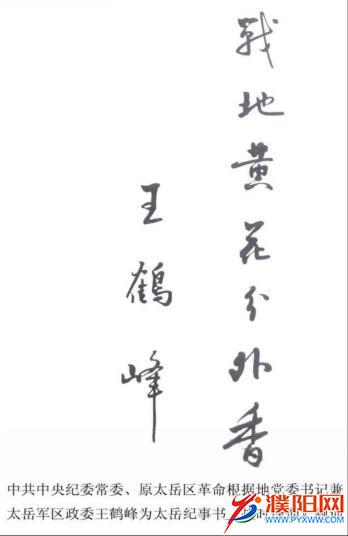 戰地黄花分外香
王鶴峰
中共中央纪委常委、原太岳区革命根据地党委书记兼
太岳军区政委王鹤峰为太岳纪事书
濮阳网